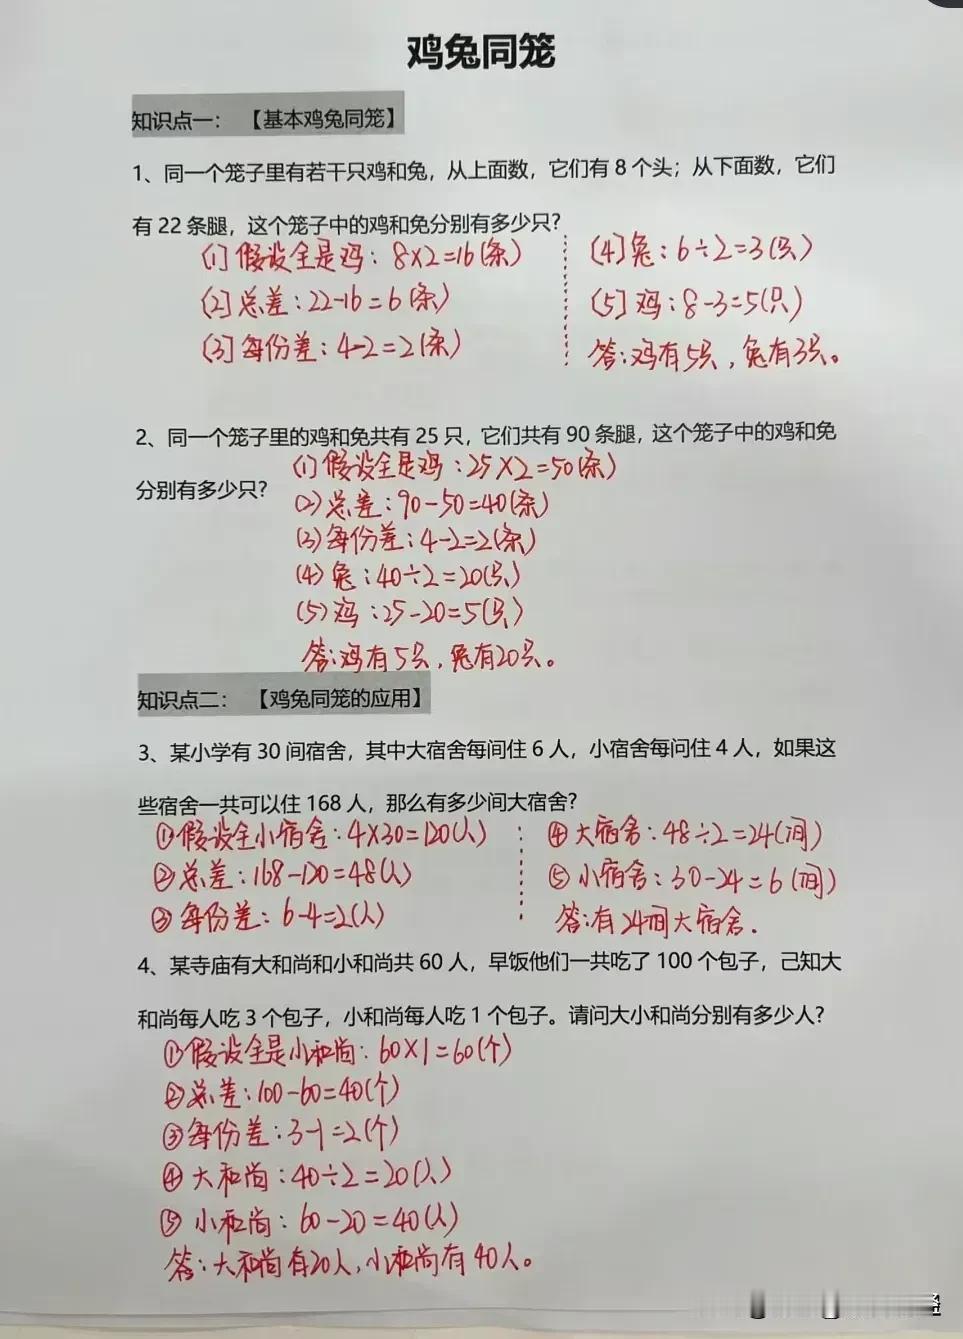 鸡兔同笼
知识点一：　【基本鸡兔同笼】
1、同一个笼子里有若干只鸡和兔，从上面数，它们有 8 个头；从下面数，它们
有 22 条腿，这个笼子中的鸡和免分别有多少只?
(1) 假设全是鸡：8×2=16(条)
(2) 总差：22-16=6(条)
(3) 每份差：4-2=2(条)
(4) 兔：6÷2=3(只)
(5) 鸡：8-3=5(只)
答：鸡有5只，兔有3只。
2、同一个笼子里的鸡和免共有 25 只，它们共有 90 条腿，这个笼子中的鸡和免
分别有多少只?
(1) 假设全是鸡：25×2=50(条)
(2) 总差：90-50=40(条)
(3) 每份差：4-2=2(条)
(4) 兔：40÷2=20(只)
(5) 鸡：25-20=5(只)
答：鸡有5只，兔有20只。
知识点二：　【鸡兔同笼的应用】
3、某小学有 30 间宿舍，其中大宿舍每间住 6 人，小宿舍每问住 4 人，如果这
些宿舍一共可以住 168 人，那么有多少间大宿舍?
①假设全小宿舍：4×30=120(人)
②总差：168-120=48(人)
③每份差：6-4=2(人)
④大宿舍：48÷2=24(间)
⑤小宿舍：30-24=6(间)
答：有24间大宿舍.
4、某寺庙有大和尚和小和尚共 60 人，早饭他们一共吃了 100 个包子，己知大
和尚每人吃 3 个包子，小和尚每人吃 1 个包子。请问大小和尚分别有多少人?
①假设全是小和尚：60×1=60(个)
②总差：100-60=40(个)
③每份差：3-1=2(个)
④大和尚：40÷2=20(人)
⑤小和尚：60-20=40(人)
答：大和尚有20人，小和尚有40人。